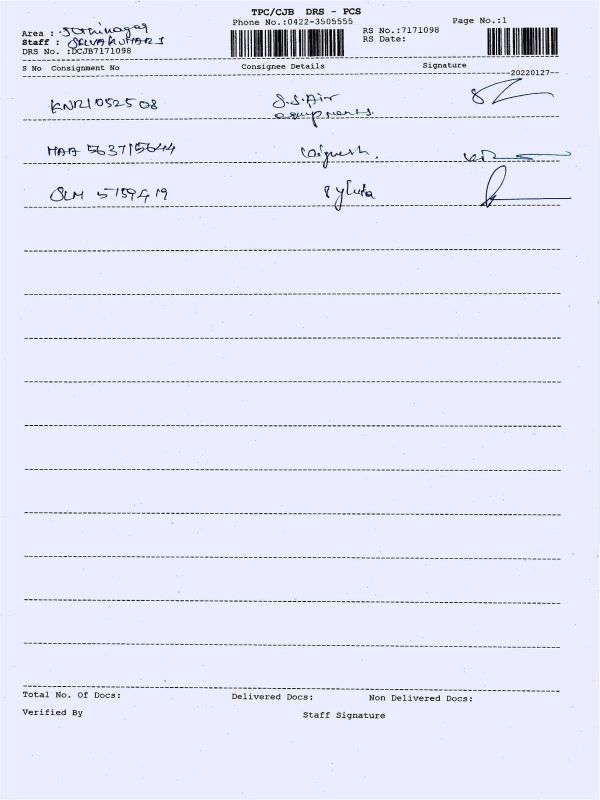 TPC/CJB DRS - PCS
Phone No.:0422-3505555
Page No.:1
Area : Jothinagar
RS No.:7171098
Staff : SELVAKUMAR S
RS Date:
DRS No. :DCJB7171098
S No Consignment No Consignee Details Signature
20220127
KNR105250 8 S.S. Air
equipments.
MAA 563715644 Vignesh.
SLM 5159419
Total No. Of Docs: Delivered Docs: Non Delivered Docs:
Verified By Staff Signature